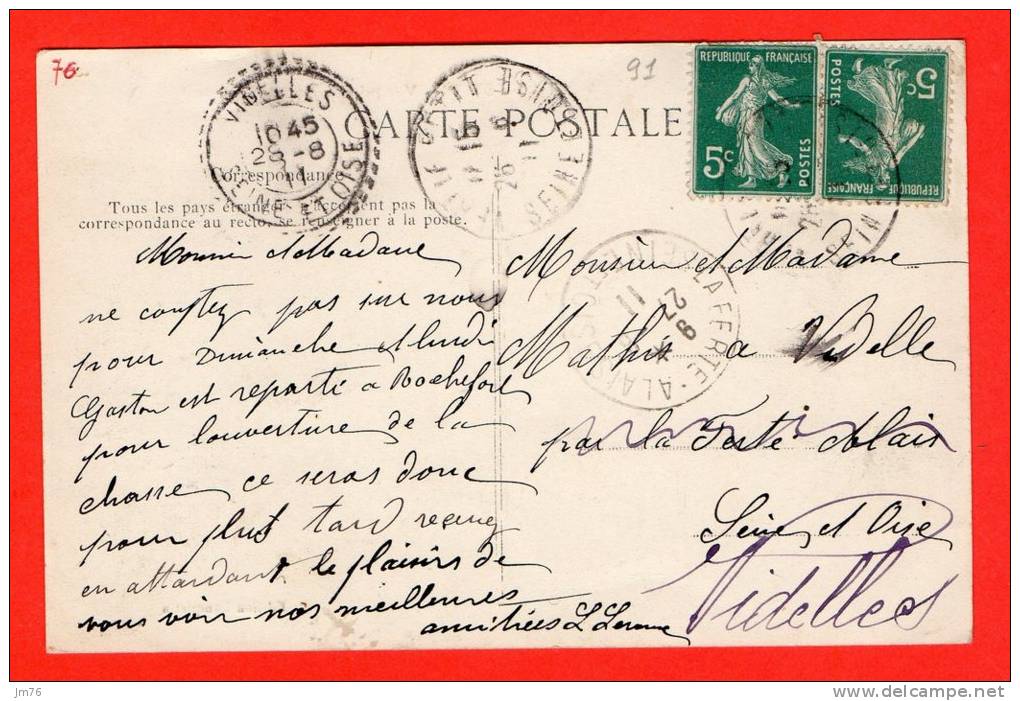 76
91
REPUBLIQUE FRANÇAISE
POSTES
5c
REPUBLIQUE FRANÇAISE
POSTES
5c
VIDELLES
10 45
28-8
11
SEINE ET OISE
SEINE
LA FERTE-ALAIS
27
11
CARTE POSTALE
Correspondance
Tous les pays étrangers n'acceptent pas la
correspondance au recto, se renseigner à la poste.
Monsieur et Madame
ne comptez pas sur nous
pour Dimanche et lundi
Gaston est reparti a Rochefort
pour l'ouverture de la
chasse ce seras donc
pour plus tard recevez
en attendant le plaisirs de
vous voir nos meilleures
amitiées
Monsieur et Madame
a Videlle
par la Ferté Alais
Seine et Oise
Videlles
jm76
www.delcampe.net